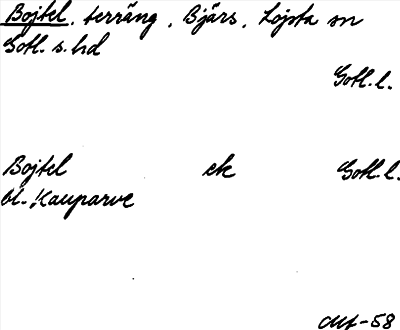 Bojtel, terräng, Bjärs, Lojsta sn
Gotl. s. hd
Gotl. l.
Bojtel ek Gotl. l.
bl. Kauparve
-58